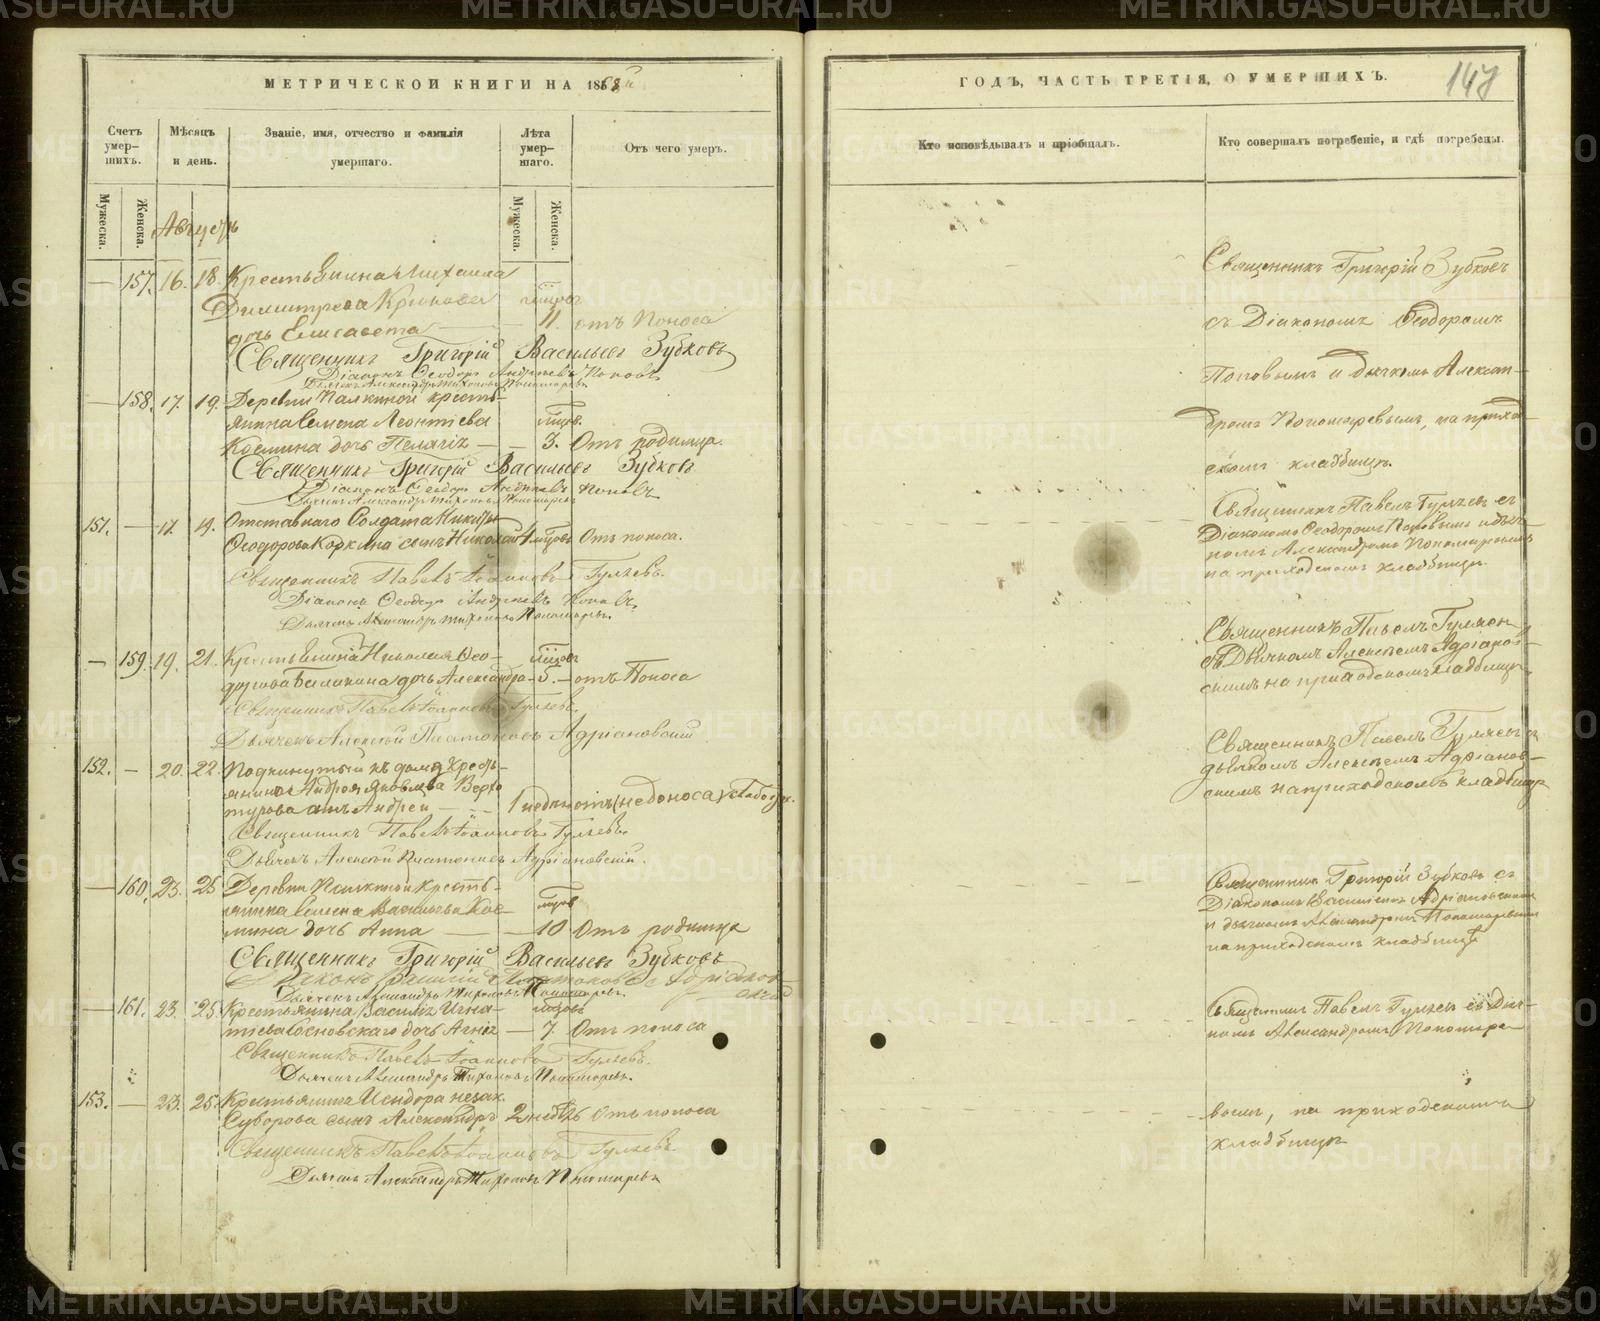 МЕТРИЧЕСКОЙ КНИГИ НА 1868й
Счетъ умер-шихъ.
Мѣсяцъ и день.
Званіе, имя, отчество и фамилія умершаго.
Лѣта умер-шаго.
Отъ чего умеръ.
Мужеска.
Женска.
Мужеска.
Женска.
Августъ
— 157. 16. 18. Крестьянина Михаила
Димитрева Крюкова мѣсцовъ
дочь Елисавета — 11. отъ Поноса
Священникъ Григорій Васильевъ Зубковъ
Діаконъ Ѳеодоръ Андреевъ Поповъ
Дьячекъ Александръ Тихоновъ Пономаревъ
— 158. 17. 19. Деревни Палкиной кресть-
янина Семена Леонтіева мѣсц.
Космина дочь Пелагія — 3. Отъ родимца.
Священникъ Григорій Васильевъ Зубковъ
Діаконъ Ѳеодоръ Андреевъ Поповъ
Дьячекъ Александръ Тихоновъ Пономаревъ
151. — 17. 19. Отставнаго Солдата Никиты
Ѳеодорова Коркина сынъ Николай 1 мѣсцовъ Отъ поноса.
Священникъ Павелъ Іоанновъ Гуляевъ.
Діаконъ Ѳеодоръ Андреевъ Поповъ.
Дьячекъ Александръ Тихоновъ Пономаревъ.
— 159. 19. 21. Крестьянина Николая Ѳео- мѣсцовъ
дорова Балакина дочь Александра — 5. — отъ Поноса
Священникъ Павелъ Іоанновъ Гуляевъ.
Дьячекъ Алексѣй Платоновъ Адріановскій
152. — 20. 22. Подкинутый къ дому Кресть-
янина Андрея Яковлева Верхо
турова Андрей — 1 недѣл. отъ (недоноса) слабости.
Священникъ Павелъ Іоанновъ Гуляевъ.
Дьячекъ Алексѣй Платоновъ Адріановскій.
— 160. 23. 25 Деревни Палкиной кресть-
янина Семена Васильева Кос- мѣсцов
мина дочь Анна — 10 Отъ родимца
Священникъ Григорій Васильевъ Зубковъ
Діаконъ Василій Платоновъ Адріанов
скій
Дьячекъ Александръ Тихоновъ Пономаревъ.
— 161. 23. 25 Крестьянина Василія Игна- мѣсцовъ
тіева Сосновскаго дочь Агнія — 7. Отъ поноса
Священникъ Павелъ Іоанновъ Гуляевъ.
Дьячекъ Александръ Тихоновъ Пономаревъ.
153. — 23. 25. Крестьянина Исидора незак.
Суворова сынъ Александръ 2 недѣль Отъ поноса
Священникъ Павелъ Іоанновъ Гуляевъ.
Дьячекъ Александръ Тихоновъ Пономаревъ
ГОДЪ, ЧАСТЬ ТРЕТІЯ, О УМЕРШИХЪ.
147
Кто исповѣдывалъ и пріобщалъ.
Кто совершалъ погребеніе, и гдѣ погребены.
Священникъ Григорій Зубковъ
съ Діакономъ Ѳеодоромъ
Поповымъ и дьячкомъ Алексан-
дромъ Пономаревымъ, на приход-
скомъ кладбищѣ.
Священникъ Павелъ Гуляевъ съ
Діакономъ Ѳеодоромъ Поповымъ и дьяч-
комъ Александромъ Пономаревымъ
на приходскомъ кладбищѣ.
Священникъ Павелъ Гуляевъ
съ Дьячкомъ Алексѣемъ Адріанов-
скимъ на приходскомъ кладбищѣ.
Священникъ Павелъ Гуляевъ съ
дьячкомъ Алексѣемъ Адріанов-
скимъ на приходскомъ кладбищѣ
Священникъ Григорій Зубковъ съ
Діакономъ Василіемъ Адріановскимъ
и дьячкомъ Александромъ Пономаревымъ
на приходскомъ кладбищѣ
Священникъ Павелъ Гуляевъ съ Дьяч-
комъ Александромъ Пономаре-
вымъ, на приходскомъ
кладбищѣ
METRIKI.GASO-URAL.RU